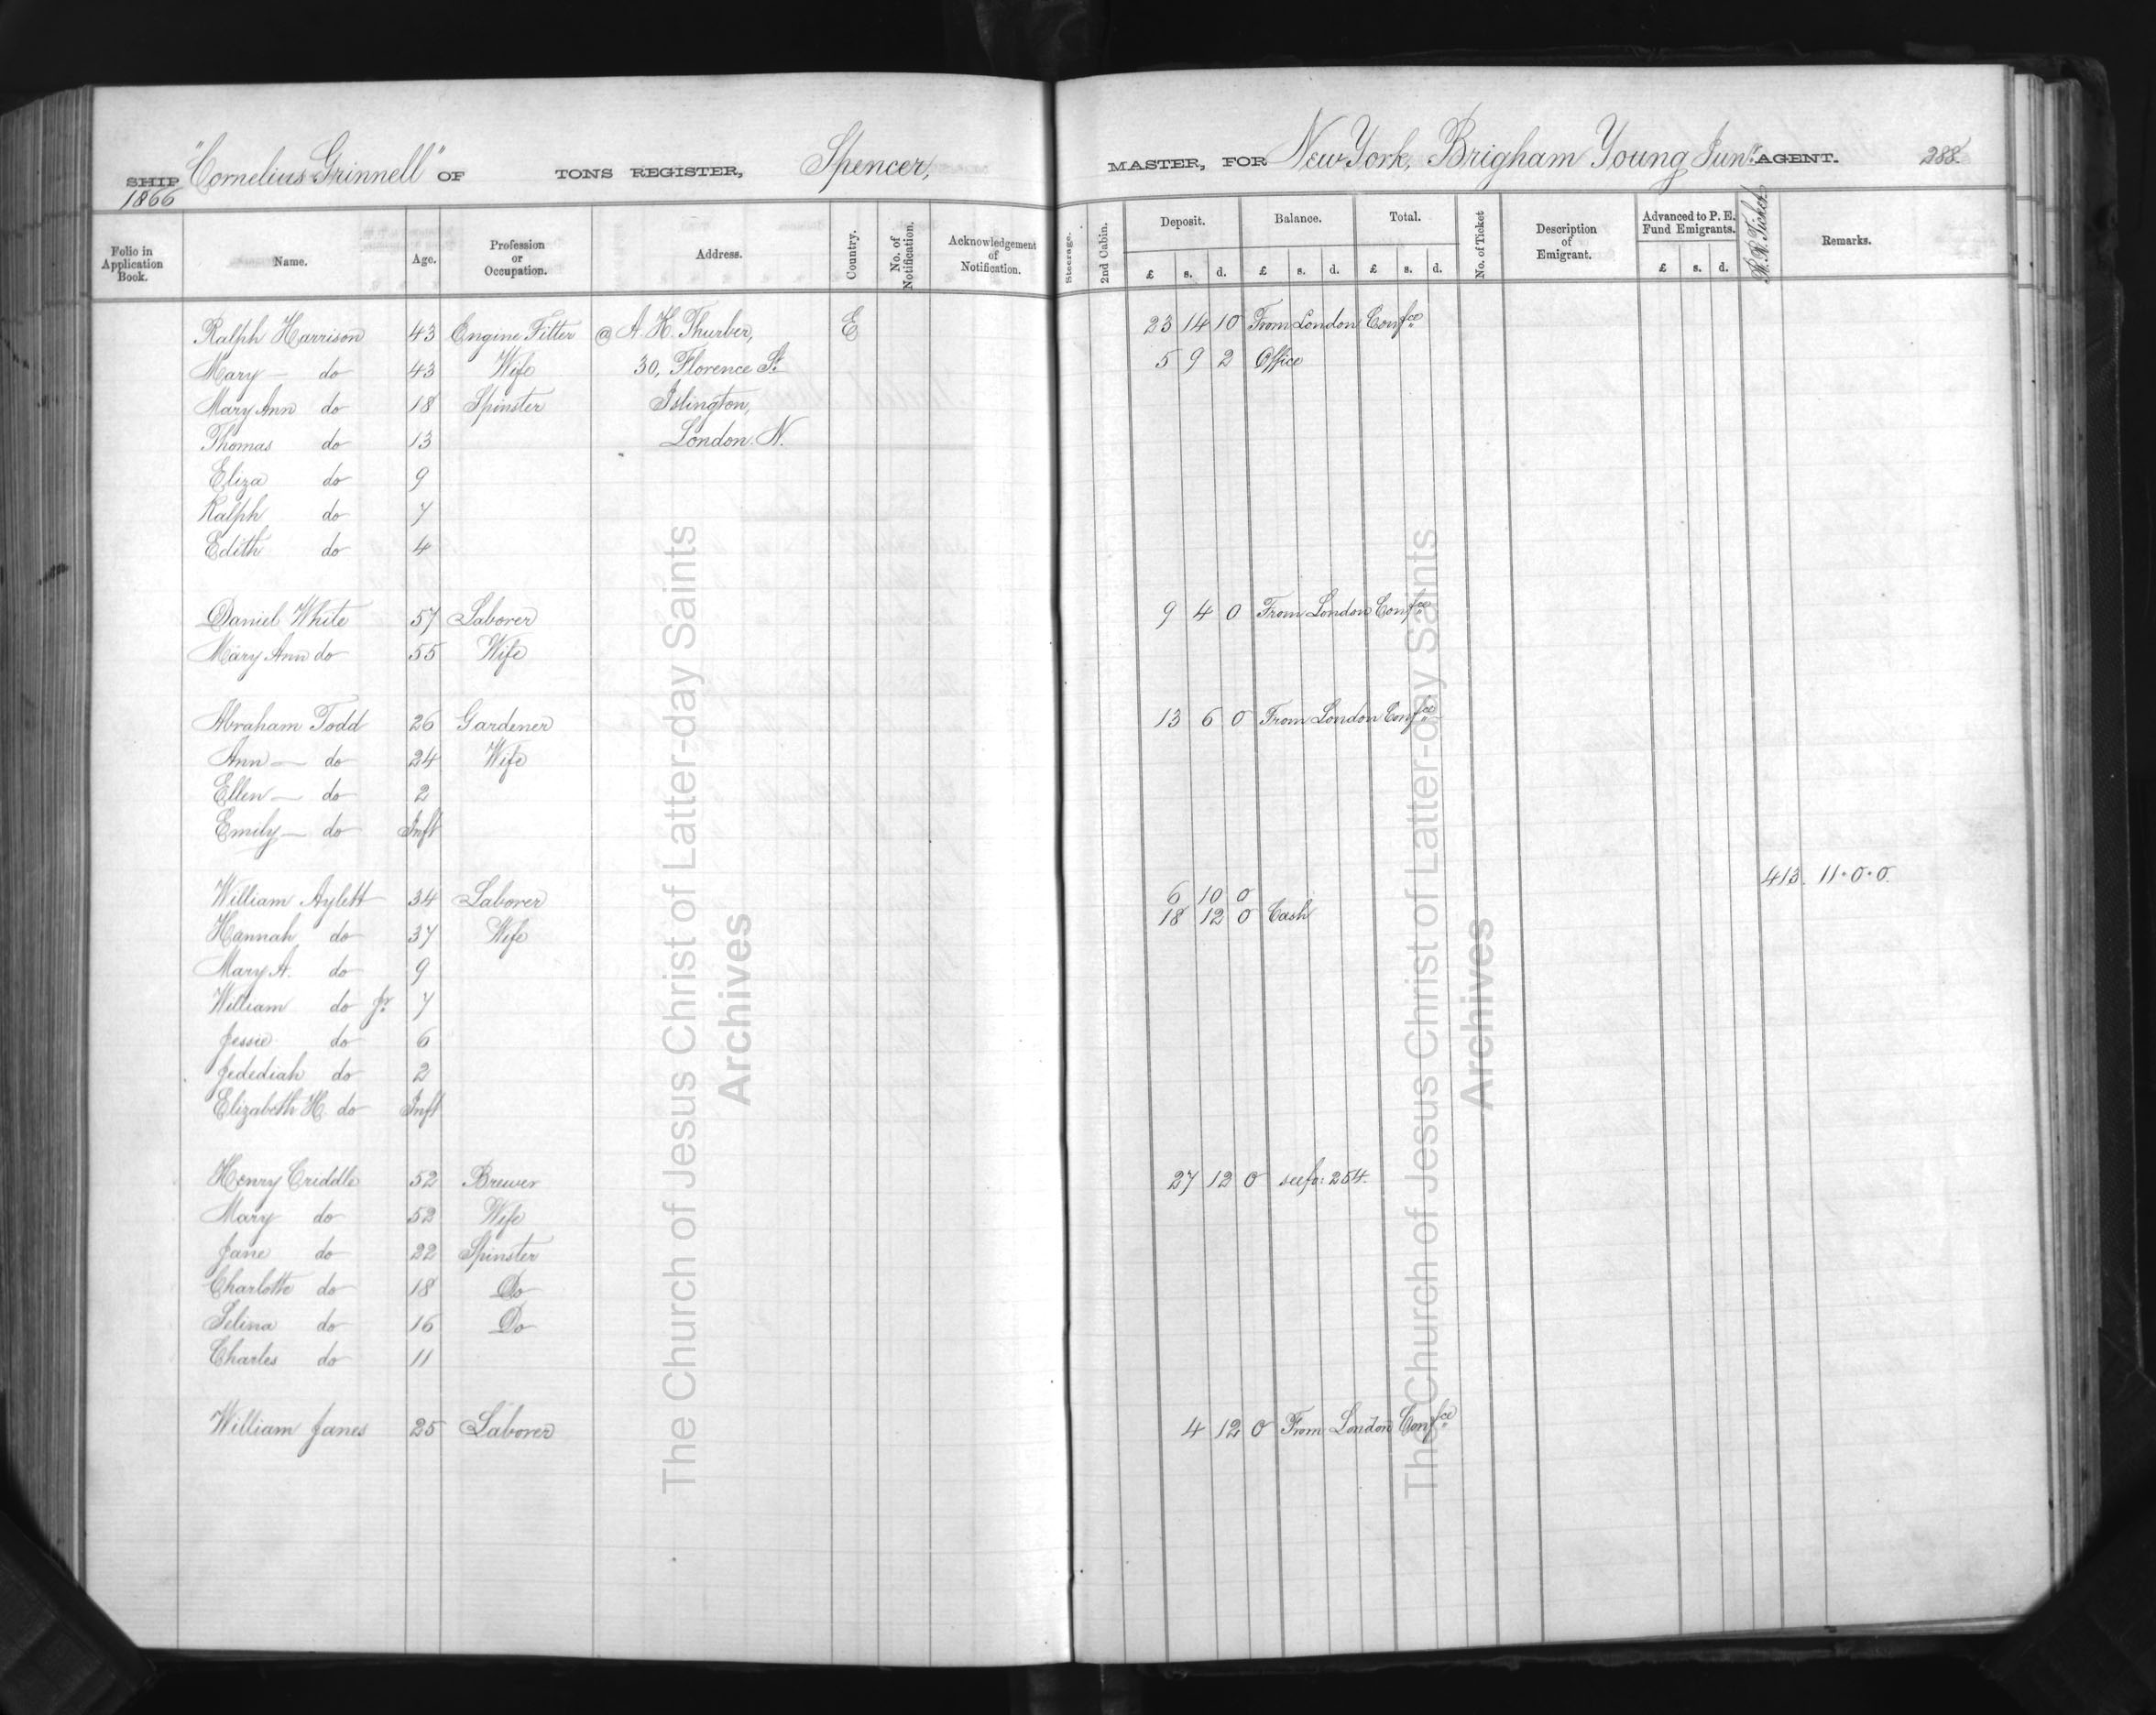 SHIP "Cornelius Grinnell" OF TONS REGISTER, Spencer, MASTER, FOR New York, Brigham Young Junr. AGENT. 288
1866
Folio in Application Book. Name. Age. Profession or Occupation. Address. Country. No. of Notification. Acknowledgement of Notification. Steerage. 2nd Cabin. Deposit. Balance. Total. No. of Ticket Description of Emigrant. Advanced to P. E. Fund Emigrants. R.R. Ticket Remarks.
£ s. d. £ s. d. £ s. d. £ s. d.
Ralph Harrison 43 Engine Fitter @ A. H. Thurber, E 23 14 10 From London Confce
Mary — do 43 Wife 30, Florence St. 5 9 2 Office
Mary Ann do 18 Spinster Islington,
Thomas do 13 London. N.
Eliza do 9
Ralph do 7
Edith do 4
Daniel White 57 Laborer 9 4 0 From London Confce
Mary Ann do 55 Wife
Abraham Todd 26 Gardener 13 6 0 From London Confce
Ann — do 24 Wife
Ellen — do 2
Emily — do Inft
413. 11.0.0.
William Aylett 34 Laborer 6 10 0
18 12 0 Cash
Hannah do 37 Wife
Mary A. do 9
William do Jr. 7
Jessie do 6
Jedediah do 2
Elizabeth H. do Inft
Henry Criddle 52 Brewer 27 12 0 see fo: 254.
Mary do 52 Wife
Jane do 22 Spinster
Charlotte do 18 Do
Selina do 16 Do
Charles do 11
William Janes 25 Laborer 4 12 0 From London Confce
The Church of Jesus Christ of Latter-day Saints
Archives
The Church of Jesus Christ of Latter-day Saints
Archives